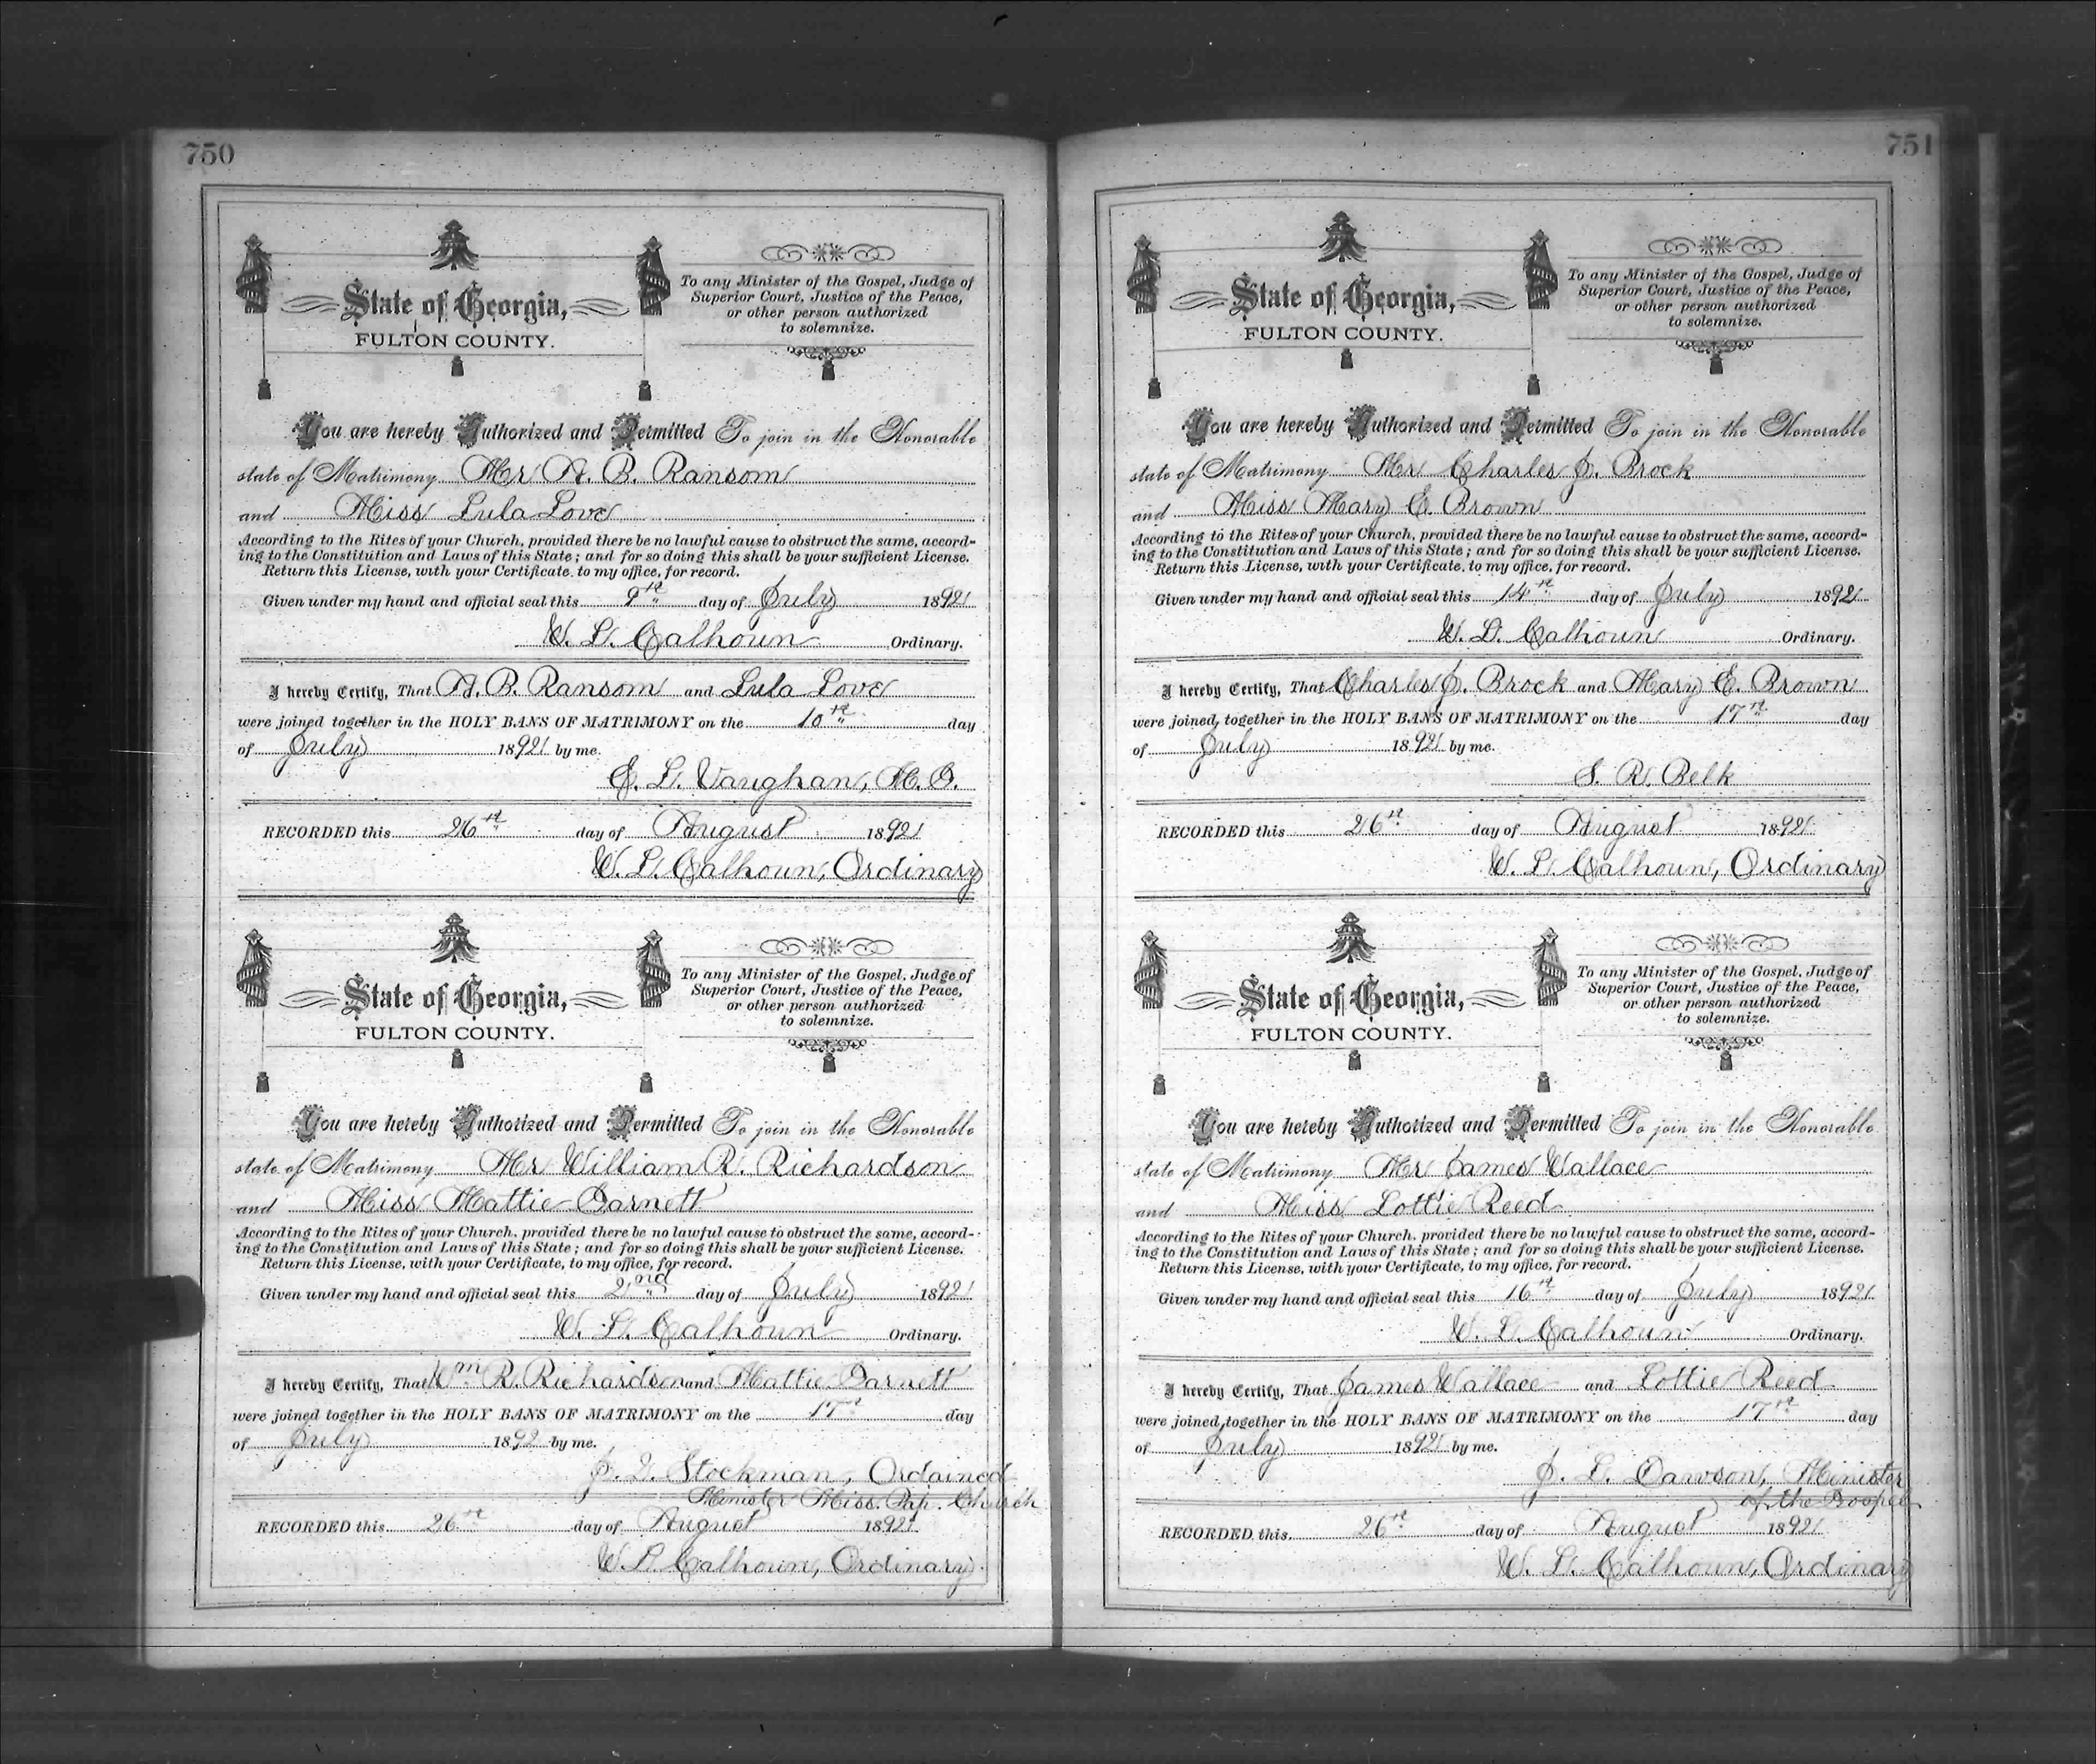 750
State of Georgia,
FULTON COUNTY.
To any Minister of the Gospel, Judge of
Superior Court, Justice of the Peace,
or other person authorized
to solemnize.
You are hereby Authorized and Permitted To join in the Honorable
state of Matrimony Mr A. B. Ransom
and Miss Lula Love
According to the Rites of your Church, provided there be no lawful cause to obstruct the same, accord-
ing to the Constitution and Laws of this State; and for so doing this shall be your sufficient License.
Return this License, with your Certificate, to my office, for record.
Given under my hand and official seal this 9th day of July 1892
W. L. Calhoun Ordinary.
I hereby Certify, That A. B. Ransom and Lula Love
were joined together in the HOLY BANS OF MATRIMONY on the 10th day
of July 1892 by me.
E. L. Vaughan, M. G.
RECORDED this 26th day of August 1892
W. L. Calhoun, Ordinary
State of Georgia,
FULTON COUNTY.
To any Minister of the Gospel, Judge of
Superior Court, Justice of the Peace,
or other person authorized
to solemnize.
You are hereby Authorized and Permitted To join in the Honorable
state of Matrimony Mr William R. Richardson
and Miss Mattie Garnett
According to the Rites of your Church, provided there be no lawful cause to obstruct the same, accord-
ing to the Constitution and Laws of this State; and for so doing this shall be your sufficient License.
Return this License, with your Certificate, to my office, for record.
Given under my hand and official seal this 2nd day of July 1892
W. L. Calhoun Ordinary.
I hereby Certify, That Wm R. Richardson and Mattie Garnett
were joined together in the HOLY BANS OF MATRIMONY on the 17th day
of July 1892 by me.
Stockman, Ordained
Minister Miss. Bap. Church
RECORDED this 26th day of August 1892
W. L. Calhoun, Ordinary
751
State of Georgia,
FULTON COUNTY.
To any Minister of the Gospel, Judge of
Superior Court, Justice of the Peace,
or other person authorized
to solemnize.
You are hereby Authorized and Permitted To join in the Honorable
state of Matrimony Mr Charles J. Brock
and Miss Mary E. Brown
According to the Rites of your Church, provided there be no lawful cause to obstruct the same, accord-
ing to the Constitution and Laws of this State; and for so doing this shall be your sufficient License.
Return this License, with your Certificate, to my office, for record.
Given under my hand and official seal this 14th day of July 1892
W. L. Calhoun Ordinary.
I hereby Certify, That Charles J. Brock and Mary E. Brown
were joined together in the HOLY BANS OF MATRIMONY on the 17th day
of July 1892 by me.
S. R. Belk
RECORDED this 26th day of August 1892
W. L. Calhoun, Ordinary
State of Georgia,
FULTON COUNTY.
To any Minister of the Gospel, Judge of
Superior Court, Justice of the Peace,
or other person authorized
to solemnize.
You are hereby Authorized and Permitted To join in the Honorable
state of Matrimony Mr James Wallace
and Miss Lottie Reed
According to the Rites of your Church, provided there be no lawful cause to obstruct the same, accord-
ing to the Constitution and Laws of this State; and for so doing this shall be your sufficient License.
Return this License, with your Certificate, to my office, for record.
Given under my hand and official seal this 16th day of July 1892
W. L. Calhoun Ordinary.
I hereby Certify, That James Wallace and Lottie Reed
were joined together in the HOLY BANS OF MATRIMONY on the 17th day
of July 1892 by me.
J. L. Dawson, Minister
of the Gospel
RECORDED this 26th day of August 1892
W. L. Calhoun, Ordinary